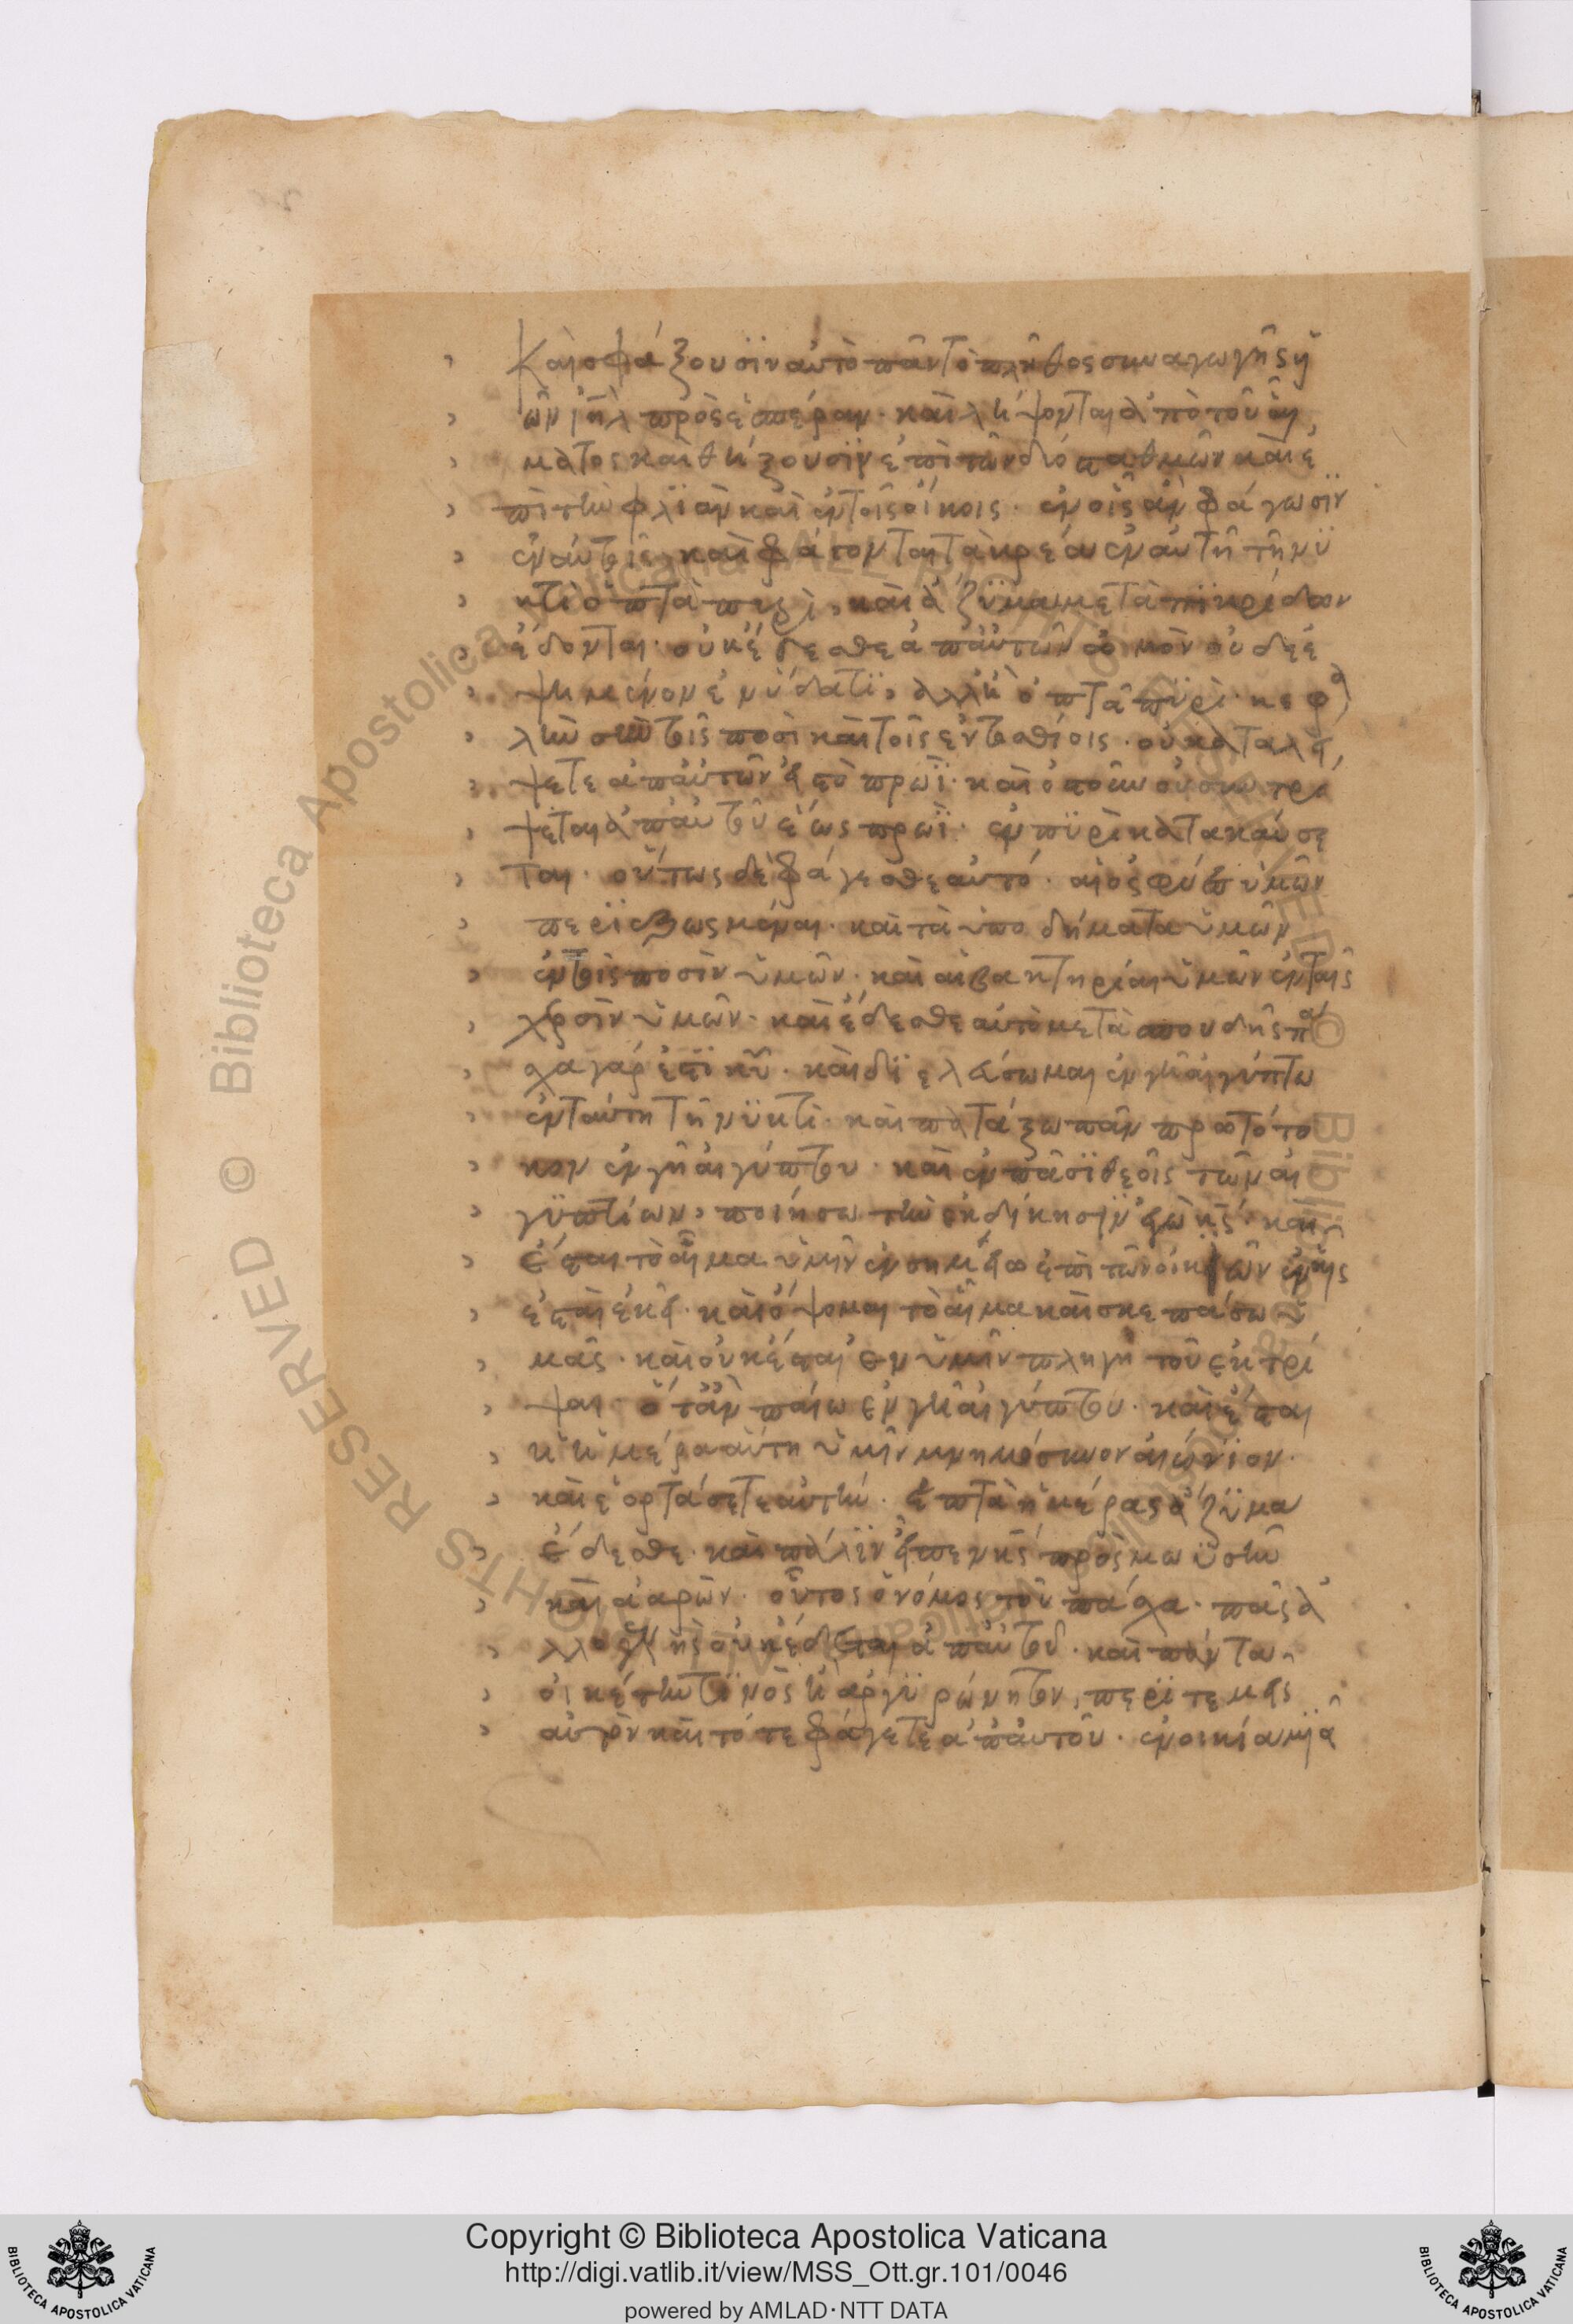 καὶ σφάξουσϊν αὐτὸ πᾶν τὸ πλῆθος συναγωγῆς ϋ
ῶν ιηλ πρὸς ἑσπέραν· καὶ λήψονται ἀπὸ τοῦ αἵ
ματος καὶ θήσουσϊν ἐπὶ τῶν δύο σταθμῶν καὶ ἐ
πὶ τὴν φλϊὰν καὶ ἐν τοῖς οἴκοις· ἐν οἷς ἂν φάγωσϊν
ἐν αὐτοῖς· καὶ φάγονται τὰ κρέα ἐν αὐτῇ τῇ νϋ
κτὶ ὀπτὰ πυρὶ, καὶ ἄζϋμα μετὰ πϊκρίδων
ἔδονται· οὐκ ἔδεσθε ἀπ' αὐτῶν ὠμὸν οὐδὲ ἑ
ψημένον ἐν ὕδατϊ, ἀλλ' ἢ ὀπτὰ πϋρί· κεφα
λὴν σὺν τοῖς ποσὶ καὶ τοῖς ἐνδοσθίοις· οὐ καταλεί
ψετε ἀπ' αὐτῶν εἰς τὸ πρωΐ· καὶ ὀστοῦν οὐ συντρί
ψεται ἀπ' αὐτοῦ ἕως πρωΐ· ἐν πϋρὶ κατακαύσε
ται· οὕτως δὲ φάγεσθε αὐτό· αἱ ὀσφύες ὑμῶν
περϊεζωσμέναι· καὶ τὰ ὑποδήματα ὑμῶν
ἐν τοῖς ποσὶν ὑμῶν· καὶ αἱ βακτηρίαι ὑμῶν ἐν ταῖς
χερσὶν ὑμῶν· καὶ ἔδεσθε αὐτὸ μετὰ σπουδῆς πά
σχα γάρ ἐστϊ κυ· καὶ δϊελεύσωμαι ἐν γῇ αἰγύπτω
ἐν ταύτη τῇ νϋκτὶ· καὶ πατάξω πᾶν πρωτότο
κον ἐν γῇ αἰγύπτου· καὶ ἐν πᾶσϊ θεοῖς τῶν αἰ
γϋπτίων, ποιήσω τὴν ἐκδίκησϊν ἐγὼ κς· καὶ
ἔσται τὸ αἷμα ὑμῖν ἐν σημείω ἐπὶ τῶν οἰκιῶν ἐν αἷς
ἐστὲ ἐκεῖ· καὶ ὄψομαι τὸ αἷμα καὶ σκεπάσω ὑ
μᾶς· καὶ οὐκ ἔσται ἐν ὑμῖν πληγὴ τοῦ ἐκτρί
ψαι· ὅταν παίω ἐν γῇ αἰγύπτου· καὶ ἔσται
ἡ ἡμέρα αὕτη ὑμῖν μνημόσυνον αἰώνϊον·
καὶ ἑορτάσετε αὐτήν· ἑπτὰ ἡμέρας ἄζϋμα
ἔδεσθε· καὶ πάλϊν εἶπεν κς πρὸς μωϋσῆν
καὶ ἀαρών· οὗτος ὁ νόμος τοῦ πάσχα· πᾶς ἀ
λλογενὴς οὐκ ἔδεται ἀπ' αὐτοῦ· καὶ πάντα
οἰκέτην τϊνὸς ἢ ἀργϋρώνητον, περϊτεμεῖς
αὐτὸν καὶ τότε φάγετε ἀπ' αὐτοῦ· ἐν οικία μϊᾶ
Copyright © Biblioteca Apostolica Vaticana
http://digi.vatlib.it/view/MSS_Ott.gr.101/0046
powered by AMLAD·NTT DATA